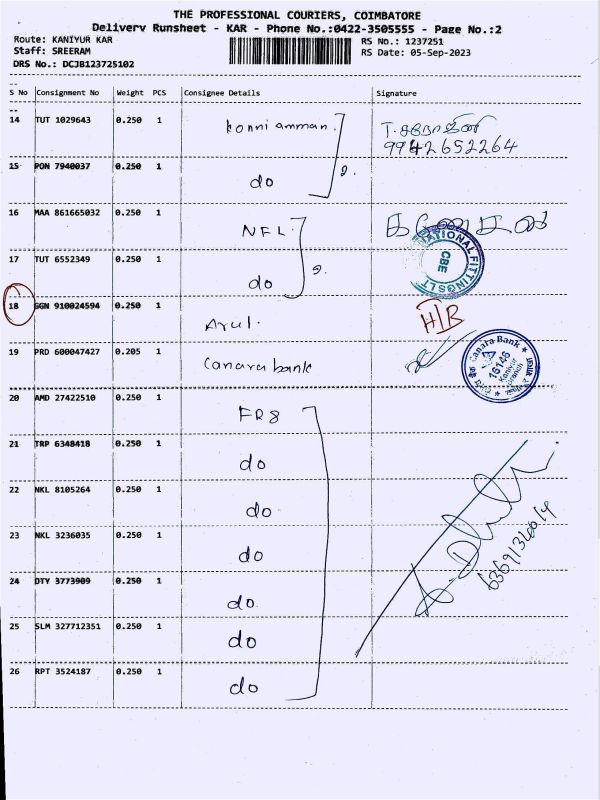 THE PROFESSIONAL COURIERS, COIMBATORE
Delivery Runsheet - KAR - Phone No.:0422-3505555 - Page No.:2
Route: KANIYUR KAR RS No.: 1237251
Staff: SREERAM RS Date: 05-Sep-2023
DRS No.: DCJB123725102
S No Consignment No Weight PCS Consignee Details Signature
14 TUT 1029643 0.250 1 konni amman.
9942652264
15 PON 7940037 0.250 1 do 2.
16 MAA 861665032 0.250 1 NFL.
17 TUT 6552349 0.250 1 do 2. NATIONAL FITTINGS LT CBE
18 GGN 910024594 0.250 1 Arul. HIB
19 PRD 600047427 0.205 1 Canara bank Canara Bank 16146 Kaniyur
20 AMD 27422510 0.250 1 FR8
21 TRP 6348418 0.250 1 do
22 NKL 8105264 0.250 1 do
23 NKL 3236035 0.250 1 do
24 DTY 3773909 0.250 1 do
25 SLM 327712351 0.250 1 do
26 RPT 3524187 0.250 1 do